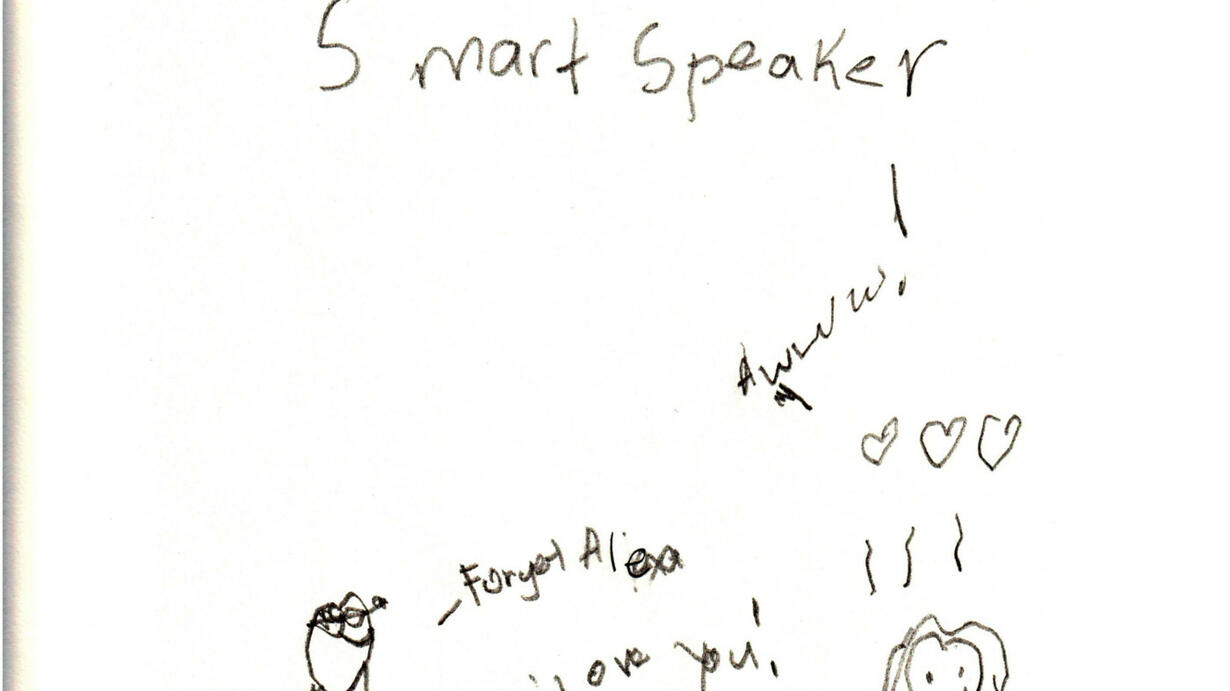 Smart Speaker
Awwww.
Forget Alexa
i love you!